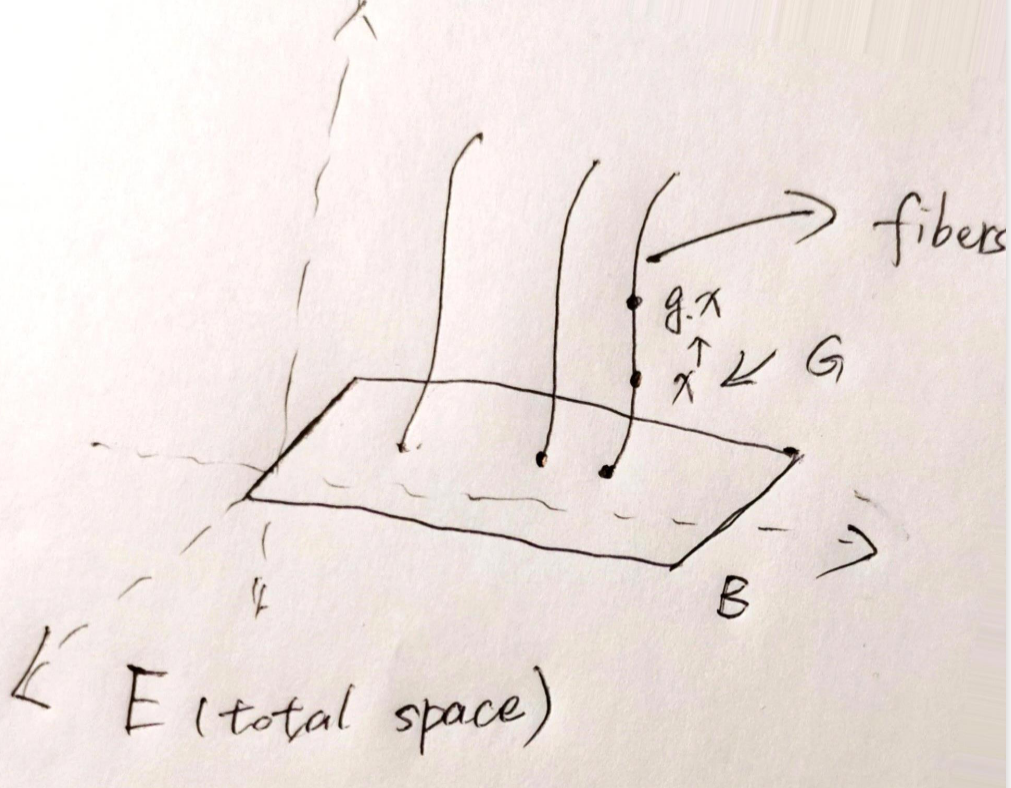 fibers
g.x
↑
x ↙ G
B
E (total space)